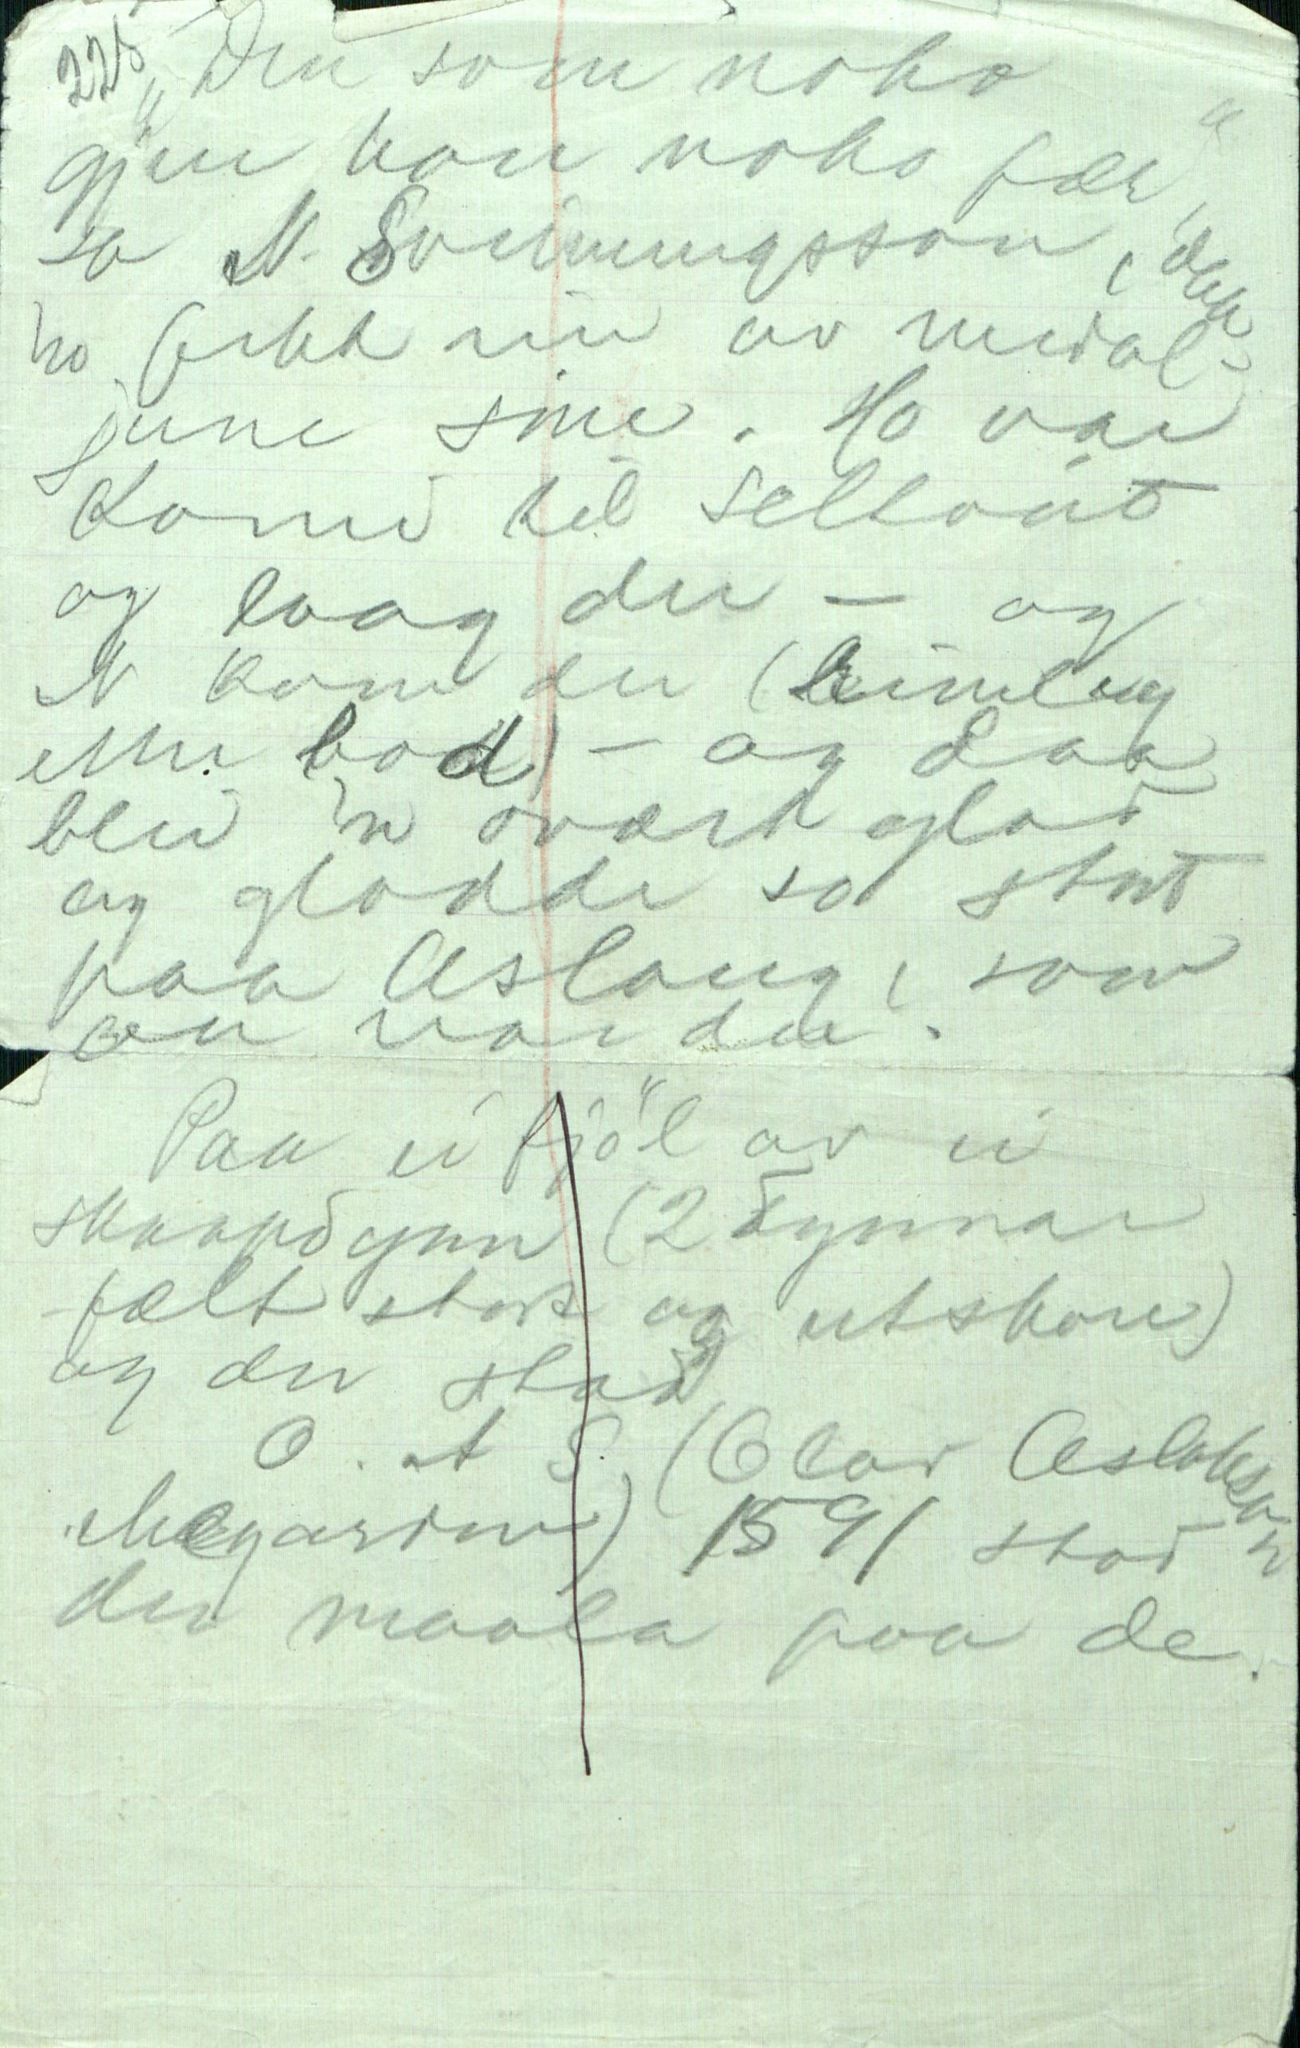 225
"Den som noko
gjev han noko fær"
sa N. Sveinungsson, dæ
'n fekk ein av medal-
june sine. Ho var
komi til seltont
og laag der — og
N kom der (heimleg
etter bod) — og daa
blei 'n ovært glad
og gladde so stort
paa Aslaug, som
au var der.
Paa ei fjöl av ei
skaapdynn (2 dynnar
fælt stort og utskore)
og der stod
O. A S. (Olav Aslakson
Megarden) 1591 stod
der maala paa de.